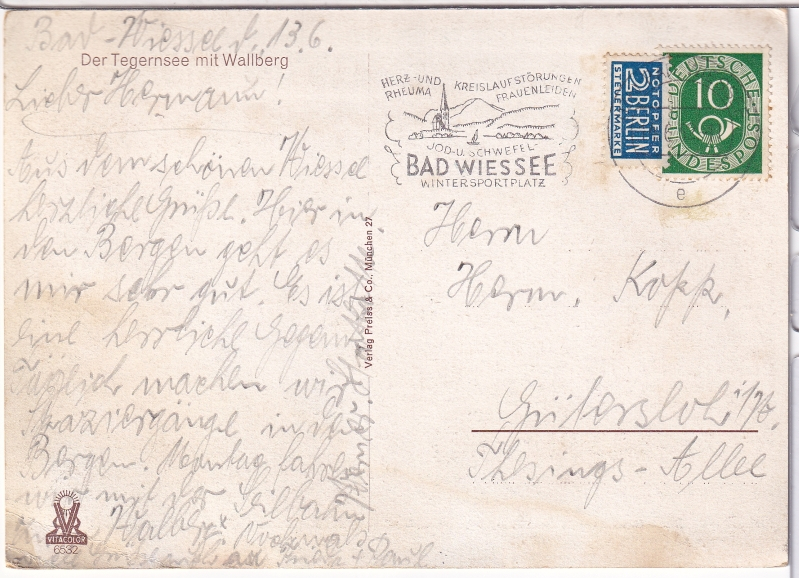 Bad-Wiessee d. 13.6.
Der Tegernsee mit Wallberg
Lieber Hermann!
Aus dem schönen Wiessee
herzliche Grüße. Hier in
den Bergen geht es
mir sehr gut. Es ist
eine herrliche Gegend.
Täglich machen wir
Spaziergänge in den
Bergen. Montag fahren
wir mit der Seilbahn
Nochmals
an
VITACOLOR
6532
Verlag Preiss & Co., München 27
HERZ- UND KREISLAUFSTÖRUNGEN
RHEUMA FRAUENLEIDEN
JOD- U. SCHWEFEL-
BAD WIESSEE
WINTERSPORTPLATZ
NOTOPFER
2 BERLIN
STEUERMARKE
DEUTSCHE BUNDESPOST
10
e
Herrn
Herm. Kopp,
Gütersloh i/W.
Thesings-Allee